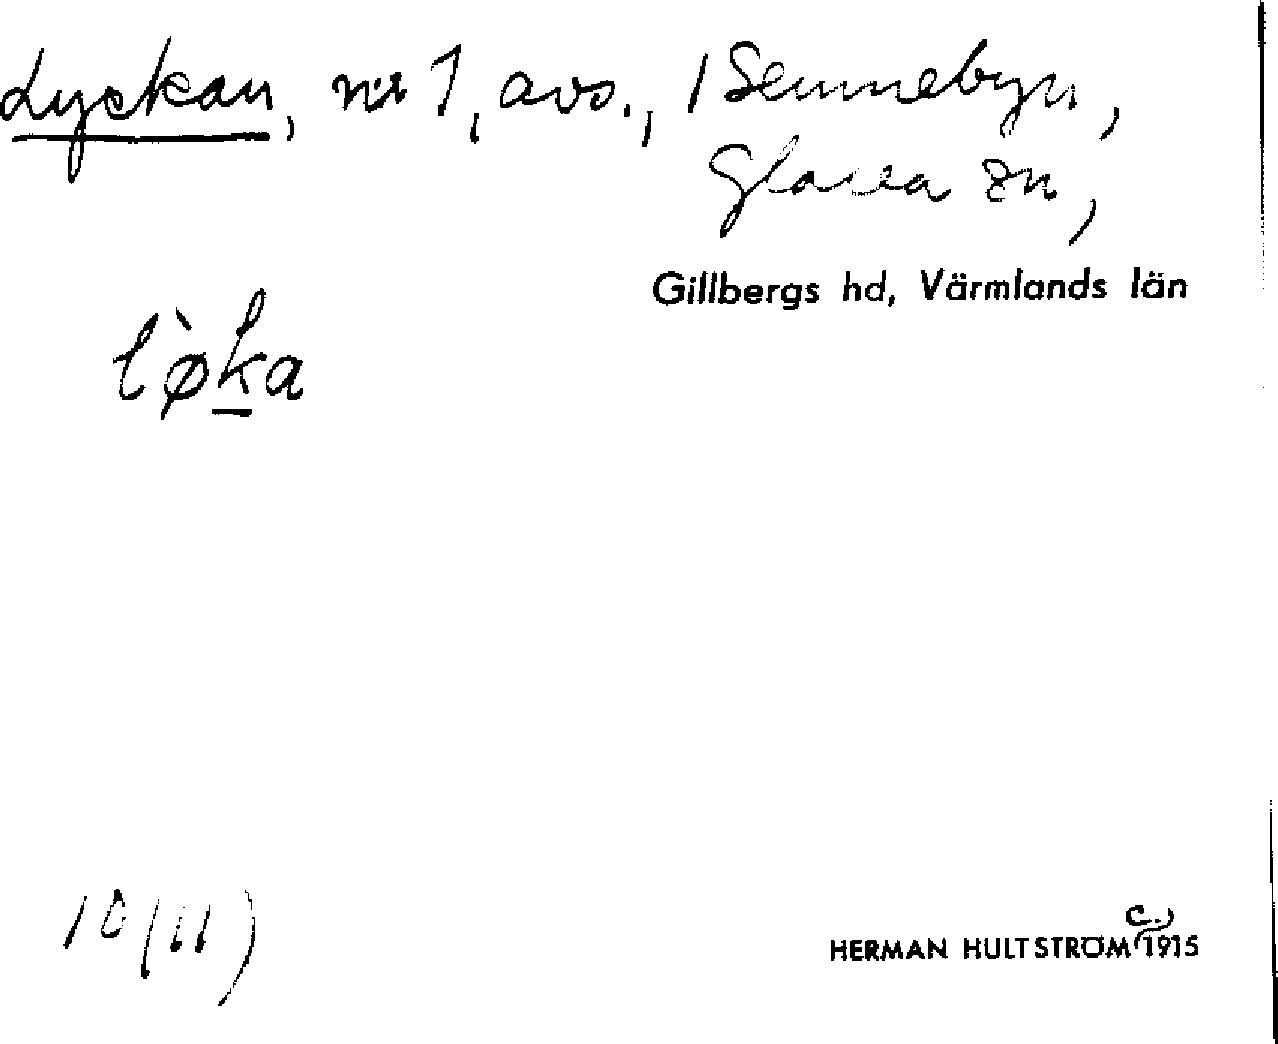 Lyckan, nr 1, avs., 1 Sunnebyn,
Glava sn,
Gillbergs hd, Värmlands län
l`øka
10 (11)
HERMAN HULTSTRÖM (C.) 1915